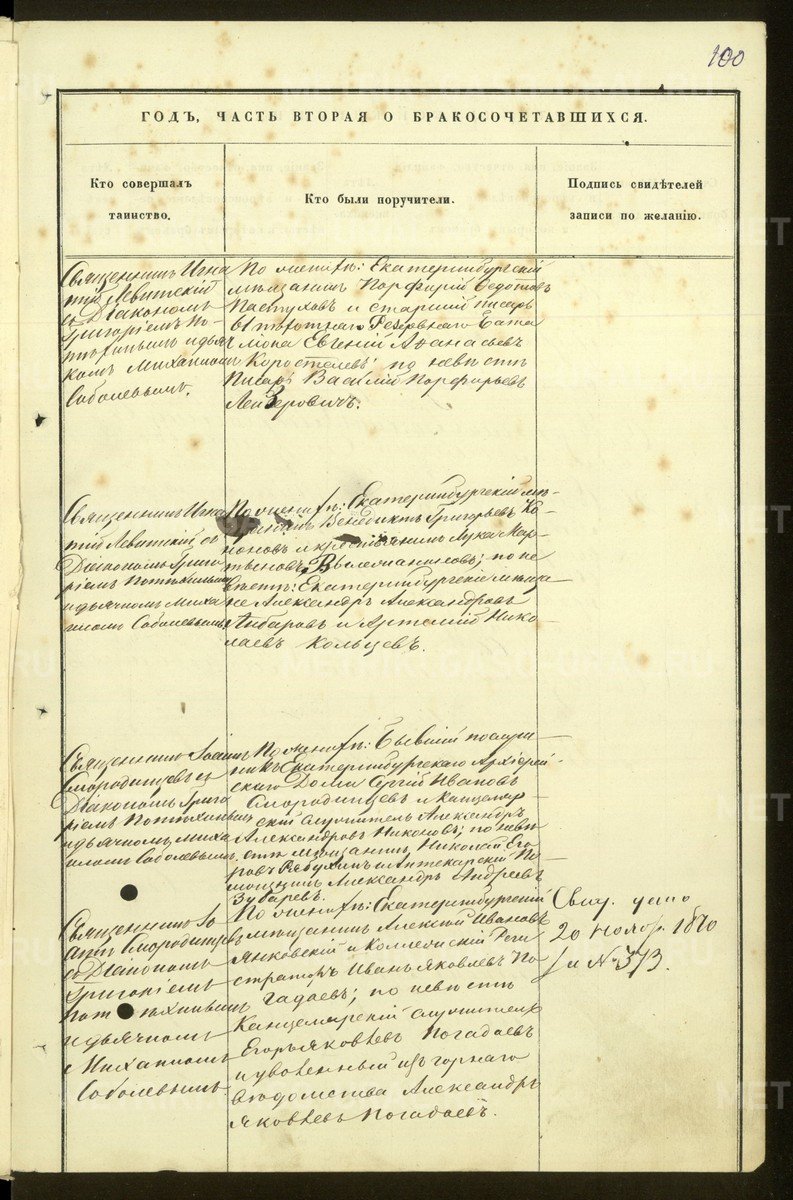 100
ГОДЪ, ЧАСТЬ ВТОРАЯ О БРАКОСОЧЕТАВШИХСЯ.
Кто совершалъ
таинство.
Кто были поручители.
Подпись свидѣтелей
записи по желанію.
Священникъ Игна
тій Левитскій
съ Діакономъ
Григоріемъ По-
и дьяч
комъ Михаиломъ
Соболевымъ.
По женихѣ: Екатеринбургскій
мѣщанинъ Порфирій Федотовъ
Пастуховъ и старшій писарь
Резервнаго Бата
ліона Евгеній Афанасьевъ
Коростелевъ; по невѣстѣ
Писарь Василій Порфирьевъ
Лейзеровичъ.
Священникъ Игна
тій Левитскій съ
Діакономъ Григо
ріемъ
и дьячкомъ Миха
иломъ Соболевымъ
По женихѣ: Екатеринбургскій мѣ-
щанинъ Венедиктъ Григорьевъ Ко-
ноновъ и крестьянинъ Лука Мар-
тьяновъ по не
вѣстѣ: Екатеринбургскіе мѣща
не Александръ Александровъ
Анбаровъ и Артемій Нико-
лаевъ Кольцевъ.
Священникъ Іоаннъ
Смородинцевъ съ
Діакономъ Григо
ріемъ
и дьячкомъ Миха
иломъ Соболевымъ.
По женихѣ: бывшій послуш-
никъ Екатеринбургскаго Архіерей-
скаго Дома Сергій Ивановъ
Смородинцевъ и Канцеляр-
скій служитель Александръ
Александровъ Никоновъ; по невѣ
стѣ мѣщанинъ Николай Его
ровъ и Аптекарскій По-
мощникъ Александръ Андреевъ
Зубаревъ.
Священникъ Іо
аннъ Смородинцевъ
съ Діакономъ
Григоріемъ
и дьячкомъ
Михаиломъ
Соболевымъ
По женихѣ: Екатеринбургскій
мѣщанинъ Алексѣй Ивановъ
Янковскій и Коллежскій Реги
страторъ Иванъ Яковлевъ По
гадаевъ; по невѣстѣ
Канцелярскій служитель
Егоръ Яковлевъ Погадаевъ
и уволенный изъ горнаго
вѣдомства Александръ
Яковлевъ Погадаевъ.
Свид. дано
20 Ноября 1870
за № 373.